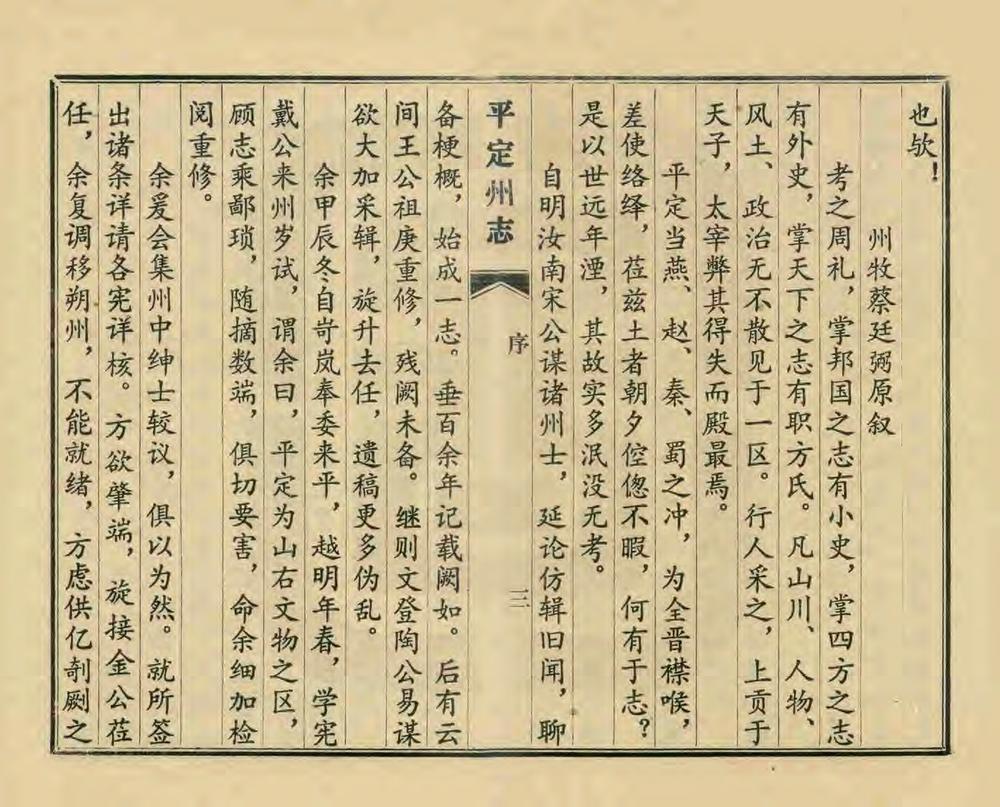 也欤！
州牧蔡廷弼原叙
考之周礼，掌邦国之志有小史，掌四方之志
有外史，掌天下之志有职方氏。凡山川、人物、
风土、政治无不散见于一区。行人采之，上贡于
天子，太宰弊其得失而殿最焉。
平定当燕、赵、秦、蜀之冲，为全晋襟喉，
差使络绎，莅兹土者朝夕倥偬不暇，何有于志？
是以世远年湮，其故实多泯没无考。
自明汝南宋公谋诸州士，延论仿辑旧闻，聊
平定州志
序
三
备梗概，始成一志。垂百余年记载阙如。后有云
间王公祖庚重修，残阙未备。继则文登陶公易谋
欲大加采辑，旋升去任，遗稿更多伪乱。
余甲辰冬自岢岚奉委来平，越明年春，学宪
戴公来州岁试，谓余曰，平定为山右文物之区，
顾志乘鄙琐，随摘数端，俱切要害，命余细加检
阅重修。
余爰会集州中绅士较议，俱以为然。就所签
出诸条详请各宪详核。方欲肇端，旋接金公莅
任，余复调移朔州，不能就绪，方虑供亿剞劂之